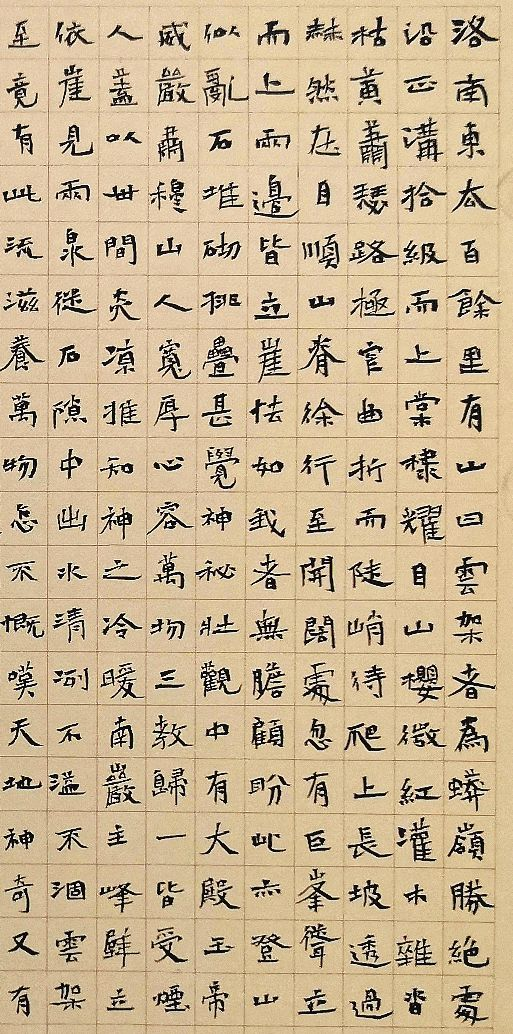 洛南東去百餘里有山曰雲架者為蟒嶺勝絕處
沿正溝拾級而上棠棣耀目山櫻微紅灌木雜沓
枯黃蕭瑟路極窄曲折而陡峭待爬上長坡透過
赫然在目順山脊徐行至開闊處忽有巨峯聳立
而上兩邊皆立崖怯如我者無膽顧盼此亦登山
似亂石堆砌排疊甚覺神秘壯觀中有大殿玉帝
威嚴肅穆山人寬厚心容萬物三教歸一皆受煙
人蓋以世間炎凉推知神之冷暖南巖主峰立
依崖見兩泉從石隙中出水清冽不溢不涸雲架
至竟有此流滋養萬物怎不慨嘆天地神奇又有